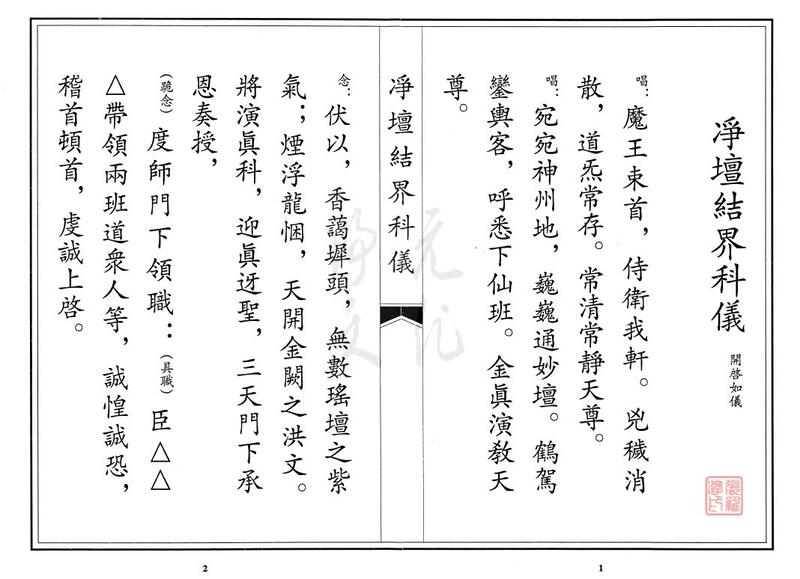 淨壇結界科儀
開啓如儀
唱：魔王束首，侍衛我軒。兇穢消
散，道炁常存。常清常靜天尊。
唱：宛宛神州地，巍巍通妙壇。鶴駕
鑾輿客，呼悉下仙班。金眞演教天
尊。
1
淨壇結界科儀
念：伏以，香藹墀頭，無數瑤壇之紫
氣；煙浮龍悃，天開金闕之洪文。
將演眞科，迎眞迓聖，三天門下承
恩奏授，
（跪念）度師門下領職：（具職）臣△△
△帶領兩班道衆人等，誠惶誠恐，
稽首頓首，虔誠上啓。
2